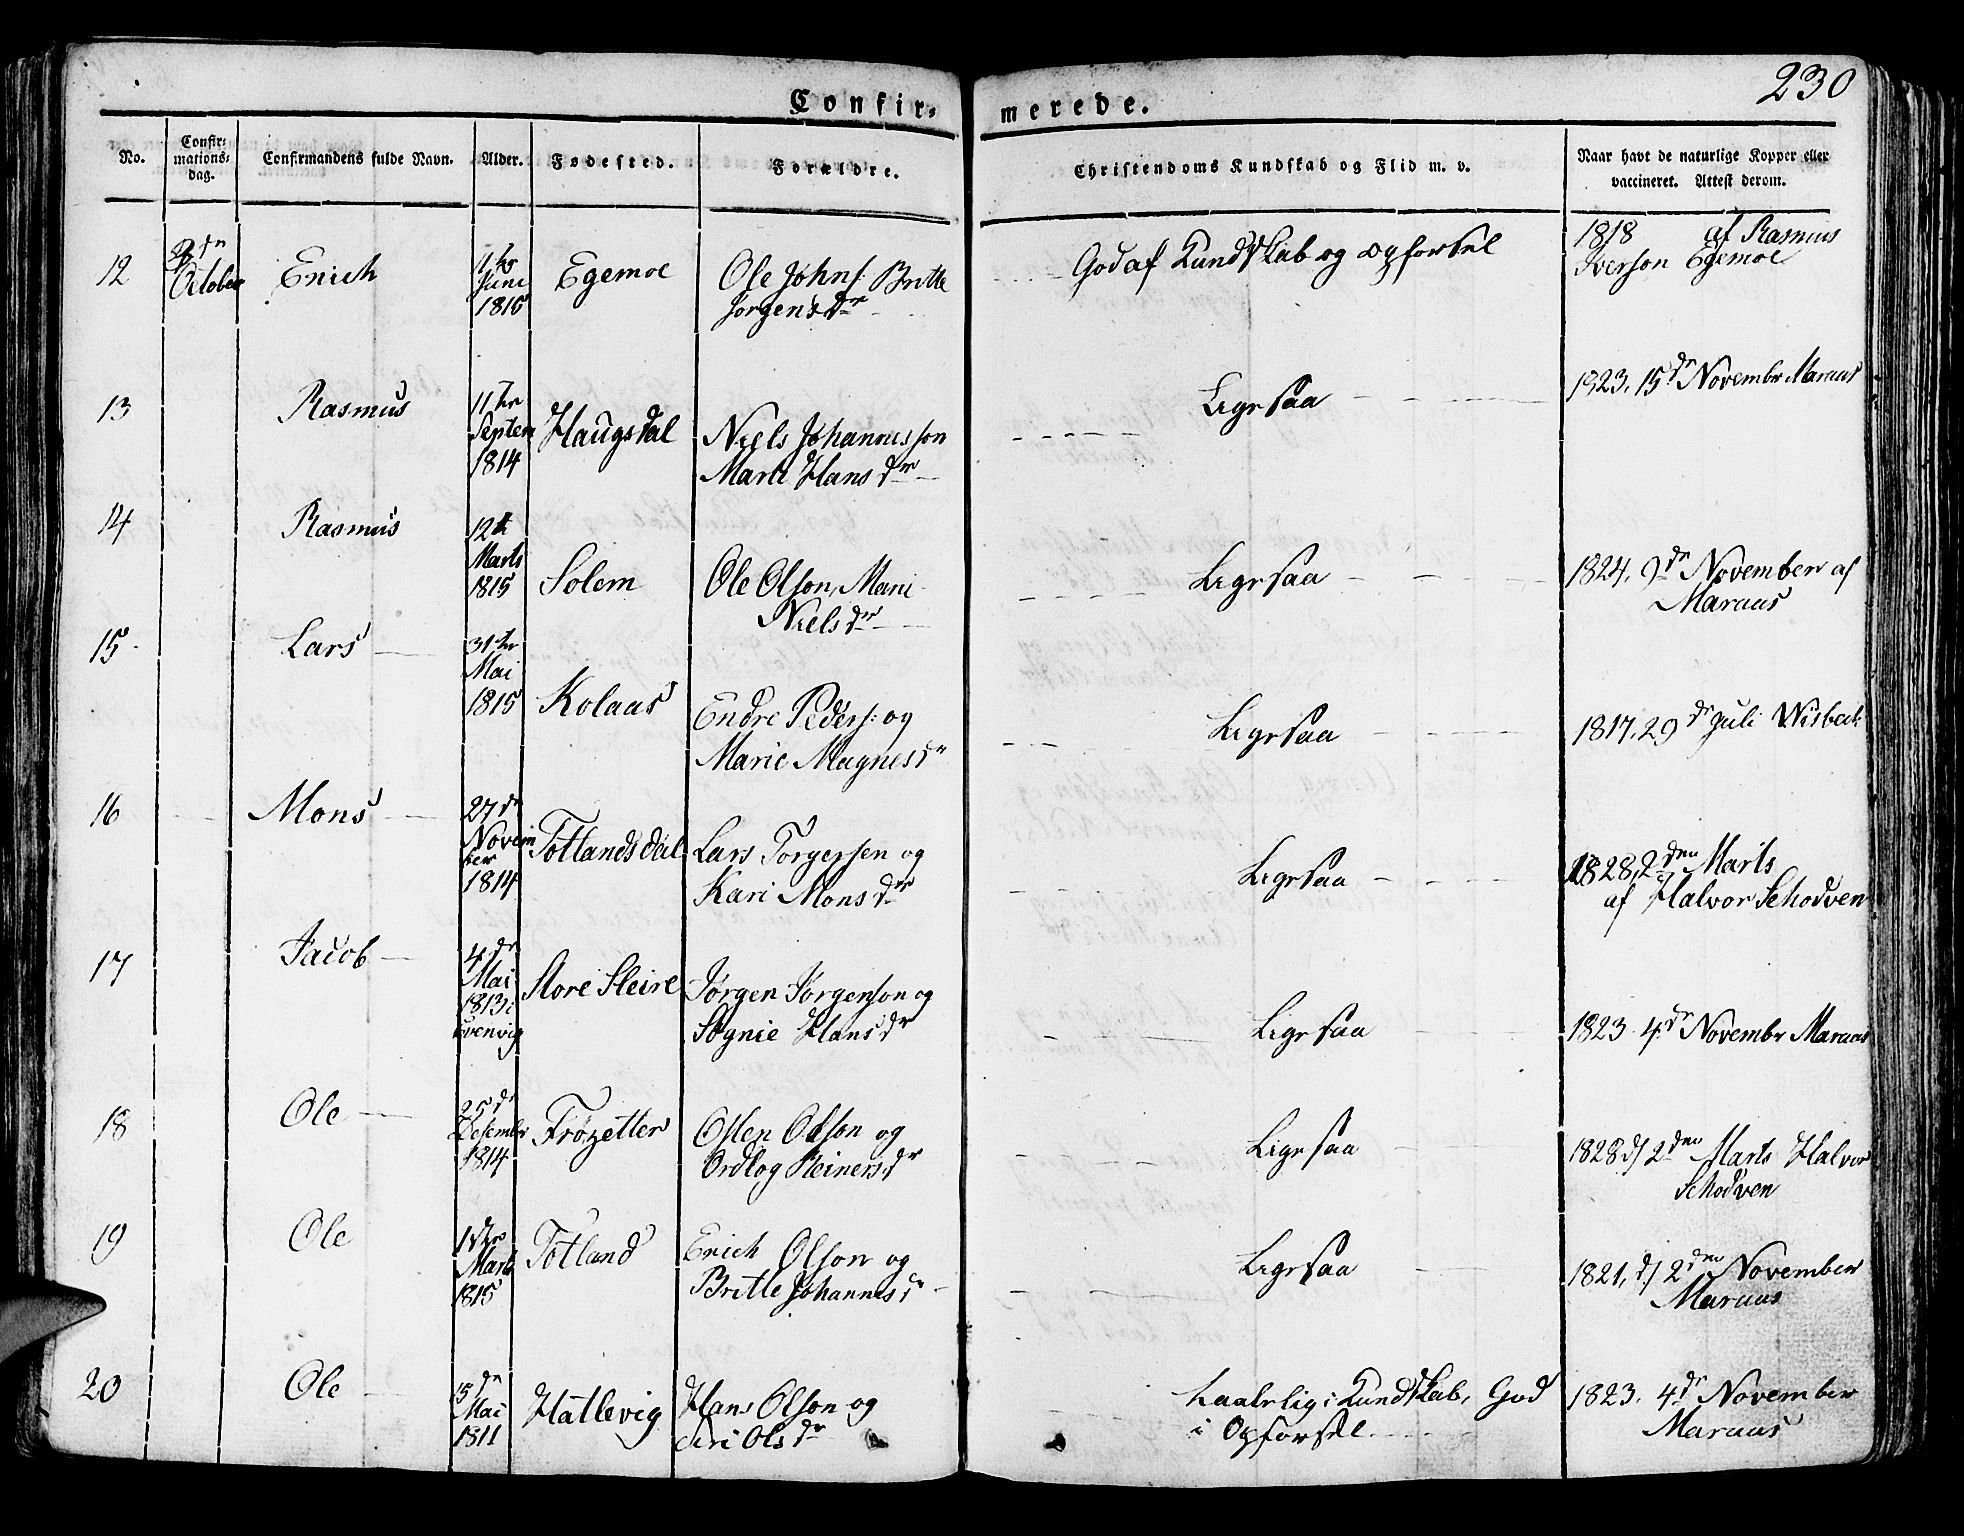 230
Confir-
merede.
No.
Confir-
mations-
dag.
Confirmandens fulde Navn.
Alder.
Fødested.
Forældre.
Christendoms Kundskab og Flid m. v.
Naar havt de naturlige Kopper eller
vaccineret. Attest derom.
12
October
Erich
11te
Juni
1815
Egemoe
Ole Johns: Britte
Jørgensdr
God af Kundskab og opførsel
1818 af Rasmus
Iverson Egemoe
13
Rasmus
11te
Septem
1814
Haugsdal
Niels Johannesson
Marte Hansdr
Ligesaa
1823, 15de November Maraas
14
Rasmus
12te
Marts
1815
Solem
Ole Olson, Mari
Nielsdr
Ligesaa
1824, 9de November af
Maraas
15
Lars
31te
Mai
1815
Kolaas
Endre Peders: og
Marie Magnesdr
Ligesaa
1817, 29de Juli Wisbech
16
Mons
27de
Novem
ber
1814
Totlandsdal
Lars Torgersen og
Kari Monsdr
Ligesaa
1828, 2den Marts
af Halvor Schodven
17
Jacob
4de
Mai
1813 i
Evenvig
Store Sleire
Jørgen Jørgenson og
Søgnie Hansdr
Ligesaa
1823. 4de November Maraas
18
Ole
25de
Desember
1814
Frøzetter
Osten Olson og
Ordlog Reinersdr
Ligesaa
1828 d/ 2den Marts Halvor
Schodven
19
Ole
1ste
Marts
1815
Totland
Erich Olson og
Britte Johannesdr
Ligesaa
1821, d/ 2den November
Maraas
20
Ole
15de
Mai
1811
Hatlevig
Hans Olson og
Siri Olsdr
Taalelig i Kundskab, God
i Opførsel
1823. 4de November
Maraas